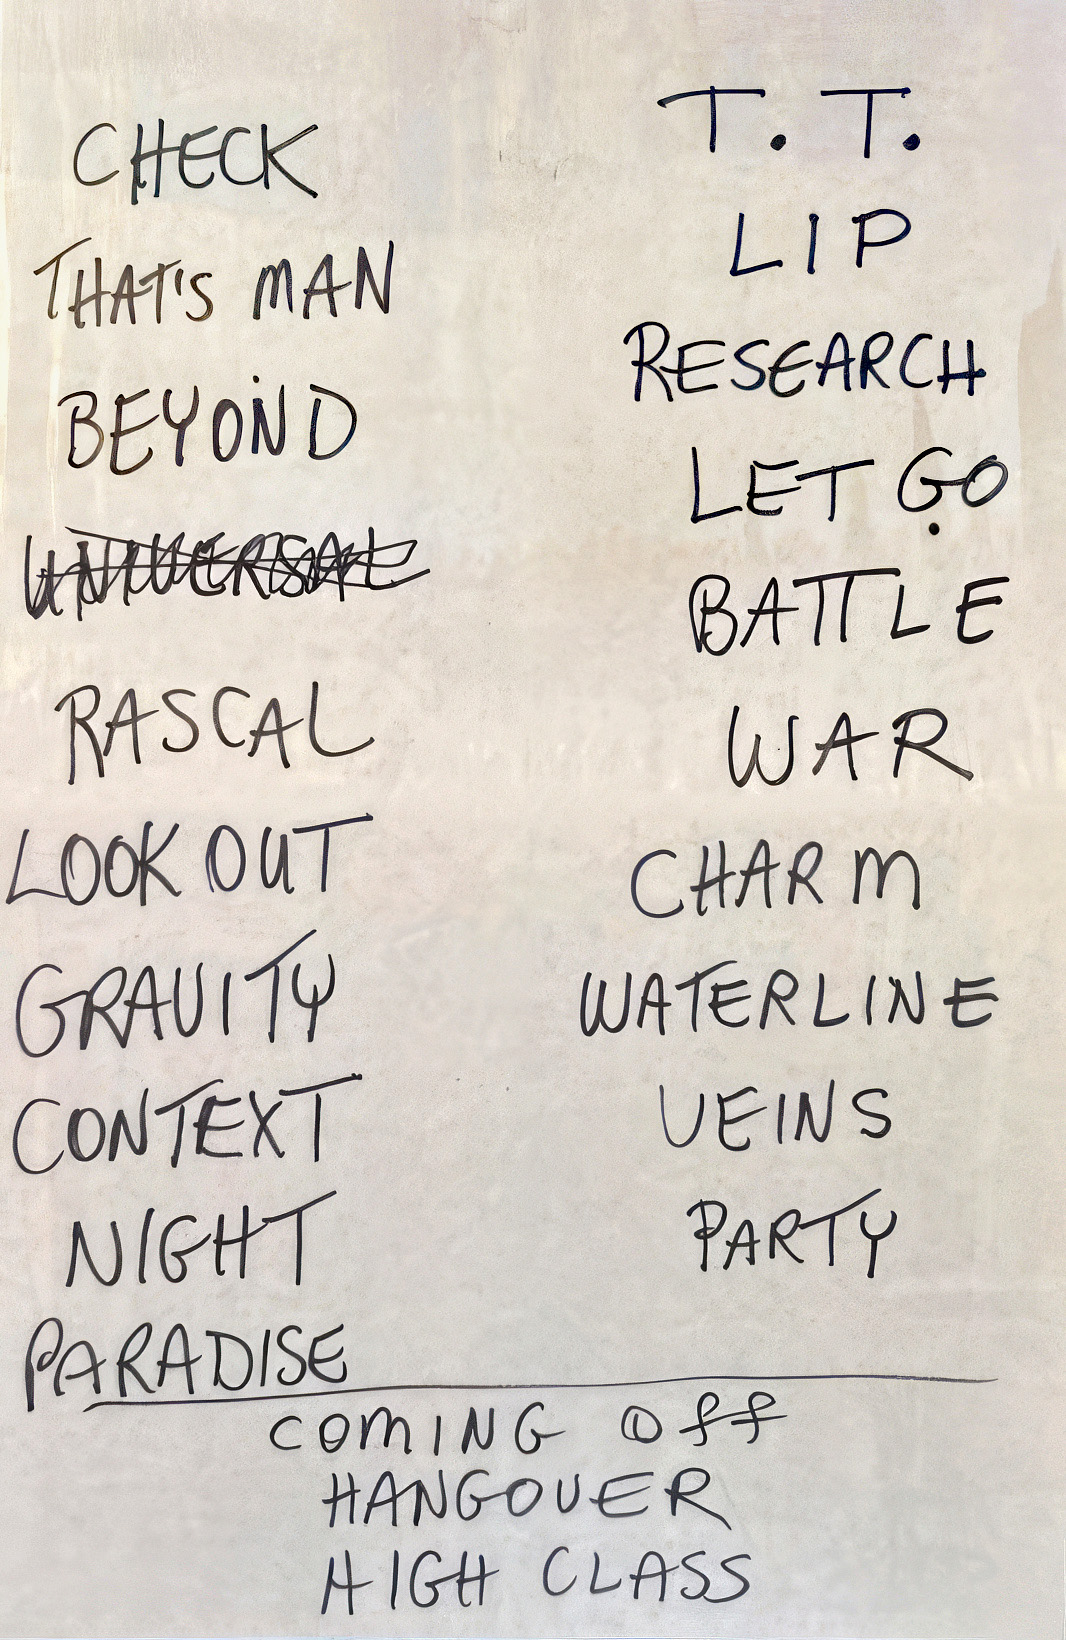 CHECK
THAT'S MAN
BEYOND
UNIVERSAL
RASCAL
LOOK OUT
GRAVITY
CONTEXT
NIGHT
PARADISE
T. T.
LIP
RESEARCH
LET GO
BATTLE
WAR
CHARM
WATERLINE
VEINS
PARTY
COMING OFF
HANGOVER
HIGH CLASS